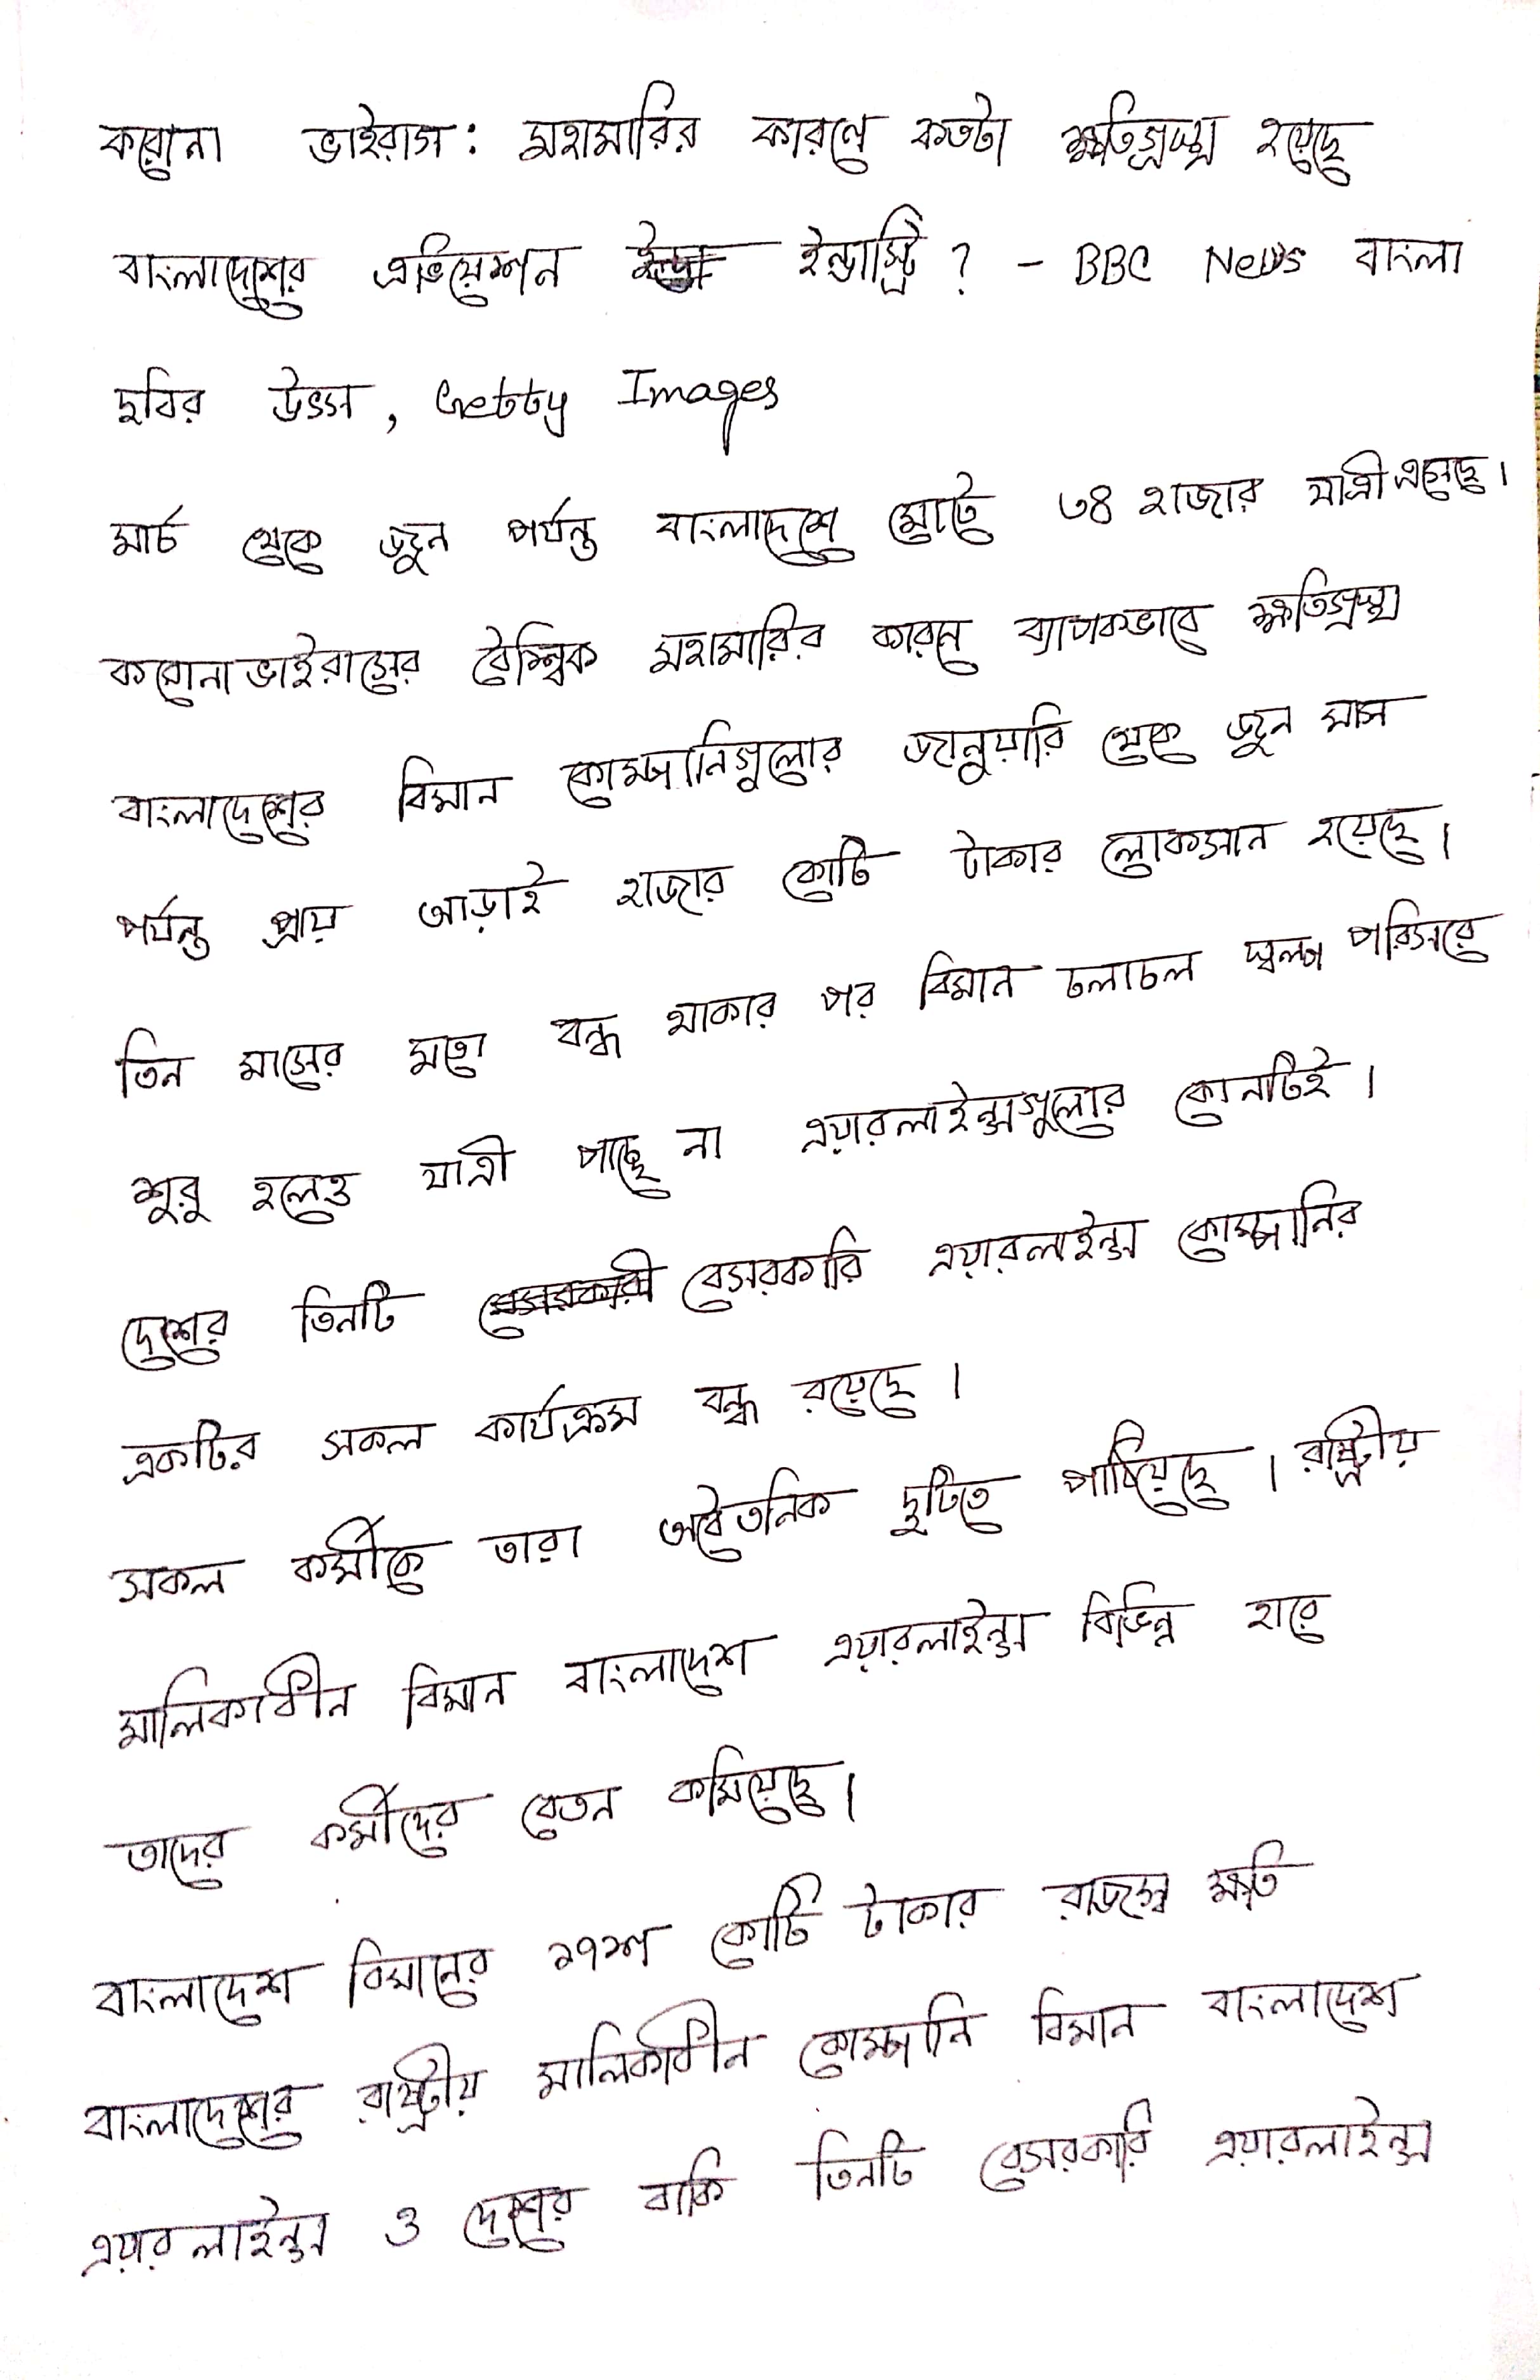 করোনা ভাইরাস: মহামারির কারণে কতটা ক্ষতিগ্রস্ত হয়েছে
বাংলাদেশের এভিয়েশন ইন্ডাস্ট্রি? - BBC News বাংলা
ছবির উৎস, Getty Images
মার্চ থেকে জুন পর্যন্ত বাংলাদেশে মোটে ৩৪ হাজার যাত্রী এসেছে।
করোনাভাইরাসের বৈশ্বিক মহামারির কারনে ব্যাপকভাবে ক্ষতিগ্রস্ত
বাংলাদেশের বিমান কোম্পানিগুলোর জানুয়ারি থেকে জুন মাস
পর্যন্ত প্রায় আড়াই হাজার কোটি টাকার লোকসান হয়েছে।
তিন মাসের মতো বন্ধ থাকার পর বিমান চলাচল স্বল্প পরিসরে
শুরু হলেও যাত্রী পাচ্ছে না এয়ারলাইন্সগুলোর কোনটিই।
দেশের তিনটি বেসরকারি এয়ারলাইন্স কোম্পানির
একটির সকল কার্যক্রম বন্ধ রয়েছে।
সকল কর্মীকে তারা অবৈতনিক ছুটিতে পাঠিয়েছে। রাষ্ট্রীয়
মালিকাধীন বিমান বাংলাদেশ এয়ারলাইন্স বিভিন্ন হারে
তাদের কর্মীদের বেতন কমিয়েছে।
বাংলাদেশ বিমানের ১৭শ কোটি টাকার রাজস্ব ক্ষতি
বাংলাদেশের রাষ্ট্রীয় মালিকাধীন কোম্পানি বিমান বাংলাদেশ
এয়ারলাইন্স ও দেশের বাকি তিনটি বেসরকারি এয়ারলাইন্স